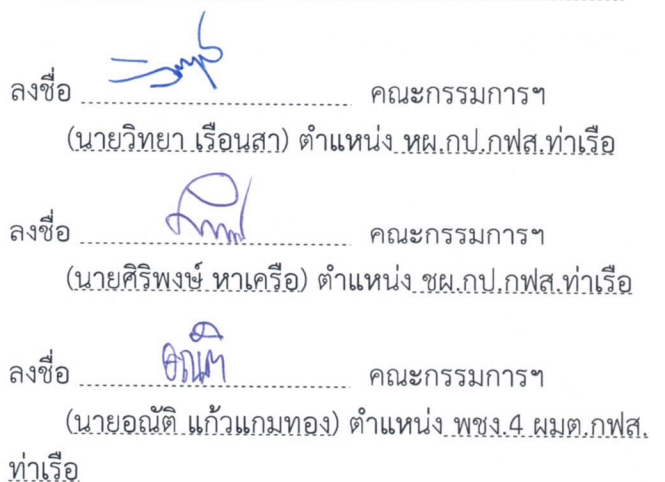 ลงชื่อ ........................ คณะกรรมการฯ
(นายวิทยา เรือนสา) ตำแหน่ง หผ.กป.กฟส.ท่าเรือ
ลงชื่อ ........................ คณะกรรมการฯ
(นายศิริพงษ์ หาเครือ) ตำแหน่ง ชผ.กป.กฟส.ท่าเรือ
ลงชื่อ อณัติ ........................ คณะกรรมการฯ
(นายอณัติ แก้วแกมทอง) ตำแหน่ง พชง.4 ผมต.กฟส.
ท่าเรือ